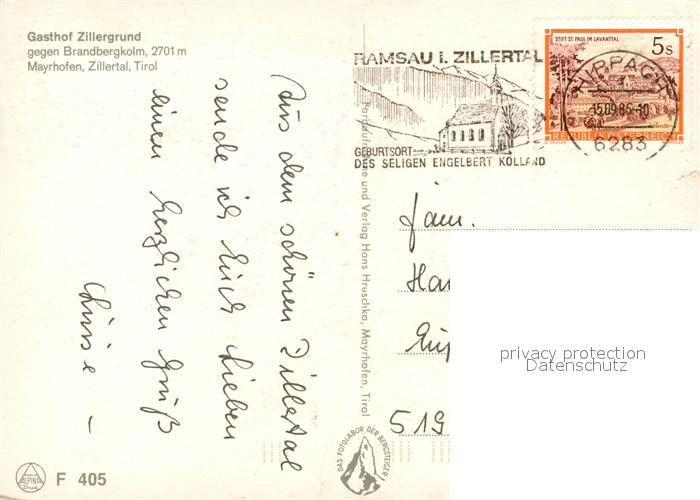 Gasthof Zillergrund
gegen Brandbergkolm, 2701 m
Mayrhofen, Zillertal, Tirol
Aus dem schönen Zillertal
sende ich Euch Lieben
einen herzlichen Gruß
Luise –
ALPINA
Druck
F 405
und Verlag Hans Hruschka, Mayrhofen, Tirol
DAS FOTOLABOR DER BERGSTEIGER
RAMSAU i. ZILLERTAL
GEBURTSORT
DES SELIGEN ENGELBERT KOLLAND
STIFT ST. PAUL IM LAVANTTAL
5 S
REPUBLIK ÖSTERREICH
HIPPACH
15.09.86-10
6283
Fam.
519
privacy protection
Datenschutz